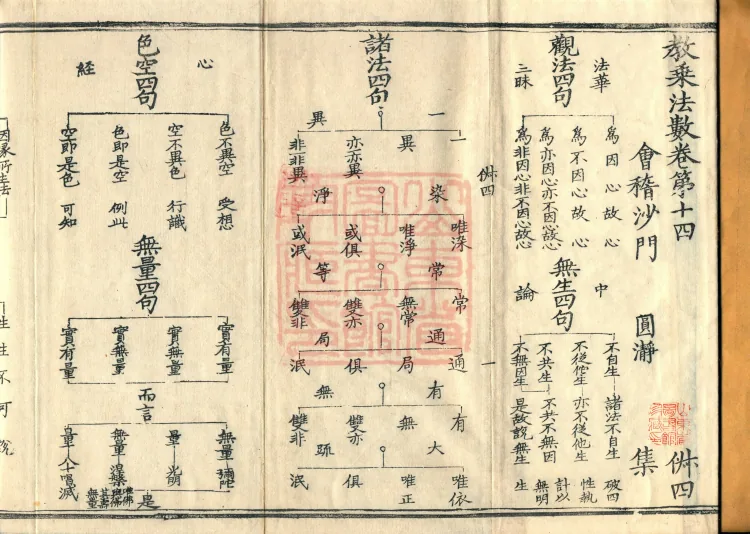 教乘法數卷第十四
㑒四
會稽沙門 圓瀞 集
觀法四句
法華
三昧
為因心故心
為不因心故心
為亦因心亦不因心故心
為非因心非不因心故心
無生四句
中
論
不自生 諸法不自生 破四
不從他生 亦不從他生 性執
不共生 不共不無因 計以
不無因生 是故說無生 無明生
諸法四句
一 異
一
異
亦一亦異
非一非異
染 淨
唯染
唯淨
或俱
或泯
常 等
常
無常
雙亦
雙非
通 局
通
局
俱
泯
有 無
有
無
雙亦
雙非
大 疏
唯依
唯正
俱
泯
色空四句
心
經
色不異空 受想
空不異色 行識
色即是空 例此
空即是色 可知
無量四句
實有量
實無量
實無量
實有量
而言
無量 彌陀
量 光明
無量 涅槃
量 入滅
是
生生不可說